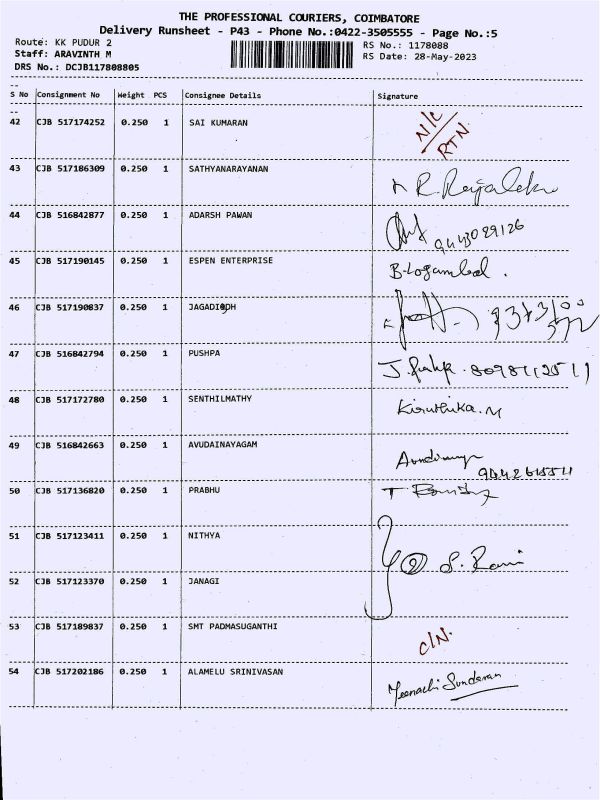 THE PROFESSIONAL COURIERS, COIMBATORE
Delivery Runsheet - P43 - Phone No.:0422-3505555 - Page No.:5
Route: KK PUDUR 2
RS No.: 1178088
Staff: ARAVINTH M
RS Date: 28-May-2023
DRS No.: DCJB117808805
--
S No Consignment No Weight PCS Consignee Details Signature
--
42 CJB 517174252 0.250 1 SAI KUMARAN N/C
RTN.
43 CJB 517186309 0.250 1 SATHYANARAYANAN
44 CJB 516842877 0.250 1 ADARSH PAWAN 9443029126
45 CJB 517190145 0.250 1 ESPEN ENTERPRISE B.Logambal.
46 CJB 517190837 0.250 1
47 CJB 516842794 0.250 1 PUSHPA
48 CJB 517172780 0.250 1 SENTHILMATHY Kiruthika.M
49 CJB 516842663 0.250 1 AVUDAINAYAGAM
50 CJB 517136820 0.250 1 PRABHU
51 CJB 517123411 0.250 1 NITHYA
② S. Rani
52 CJB 517123370 0.250 1 JANAGI
53 CJB 517189837 0.250 1 SMT PADMASUGANTHI C/N.
54 CJB 517202186 0.250 1 ALAMELU SRINIVASAN Meenachi Sundaram